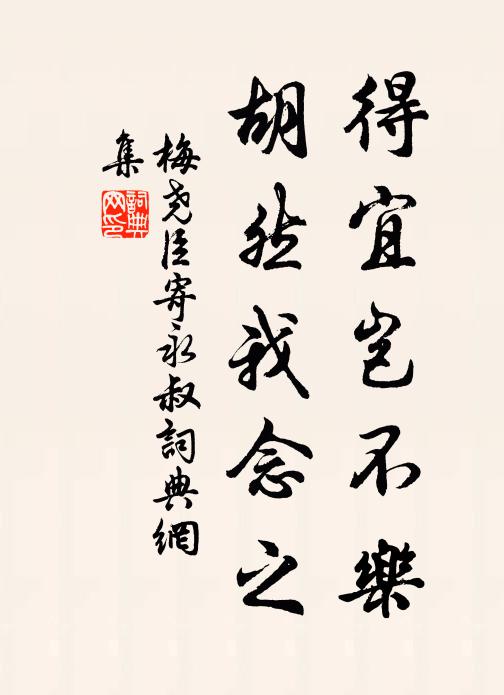 得宜豈不樂
胡然我念之
梅堯臣寄永叔詞典網
集
詞典
网印